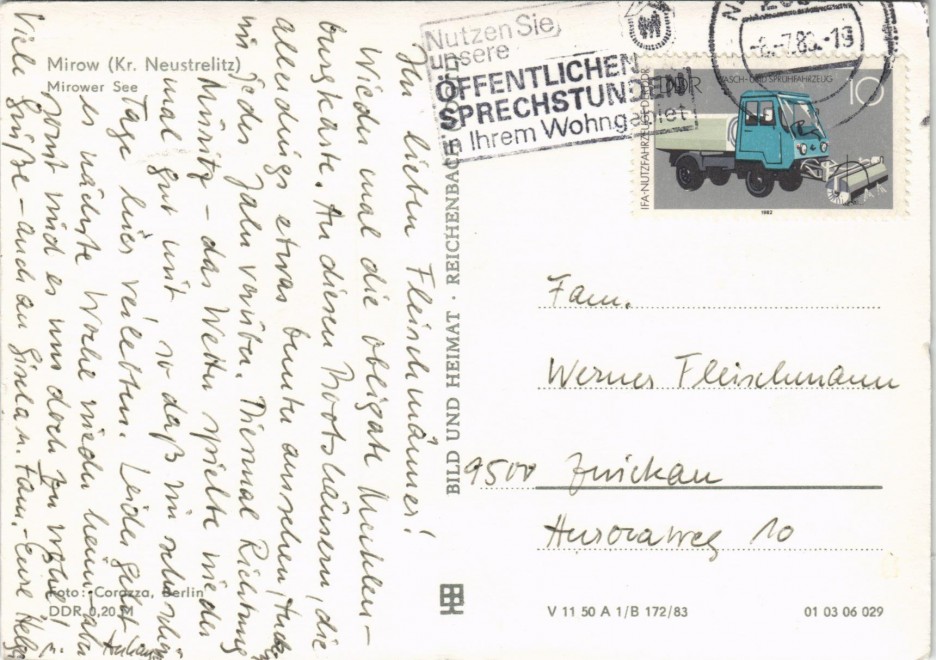 Mirow (Kr. Neustrelitz)
Mirower See
Ihr lieben Fleischmänner!
Wieder mal die obligate Mecklen-
burgkarte. An diesen Bootshäusern, die
allerdings etwas bunter aussehen,
wir jedes Jahr vorüber. Diesmal Richtung
Müritz - das Wetter spielte wieder
mal gut mit so daß wir sehr schöne
Tage hier verlebten. Leider geht
es nächste Woche wieder heim, aber
sonst wird es uns doch zu wohl!
Viele Grüße - auch an Gisela u. Fam. - Eure Helga
u.
Foto: Corazza, Berlin
DDR 0,20 M
BILD UND HEIMAT · REICHENBACH
Nutzen Sie
unsere
ÖFFENTLICHEN
SPRECHSTUNDEN
in Ihrem Wohngebiet
-8.-7.86.-19
DDR
WASCH- UND SPRÜHFAHRZEUG
10
IFA-NUTZFAHRZEUGE DER DDR
1982
Fam.
Werner Fleischmann
9500 Zwickau
Auroraweg 10
V 11 50 A 1/B 172/83
01 03 06 029